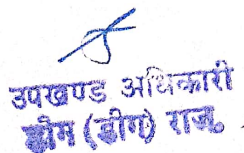 उपखण्ड अधिकारी
डीग (डीग) राज.